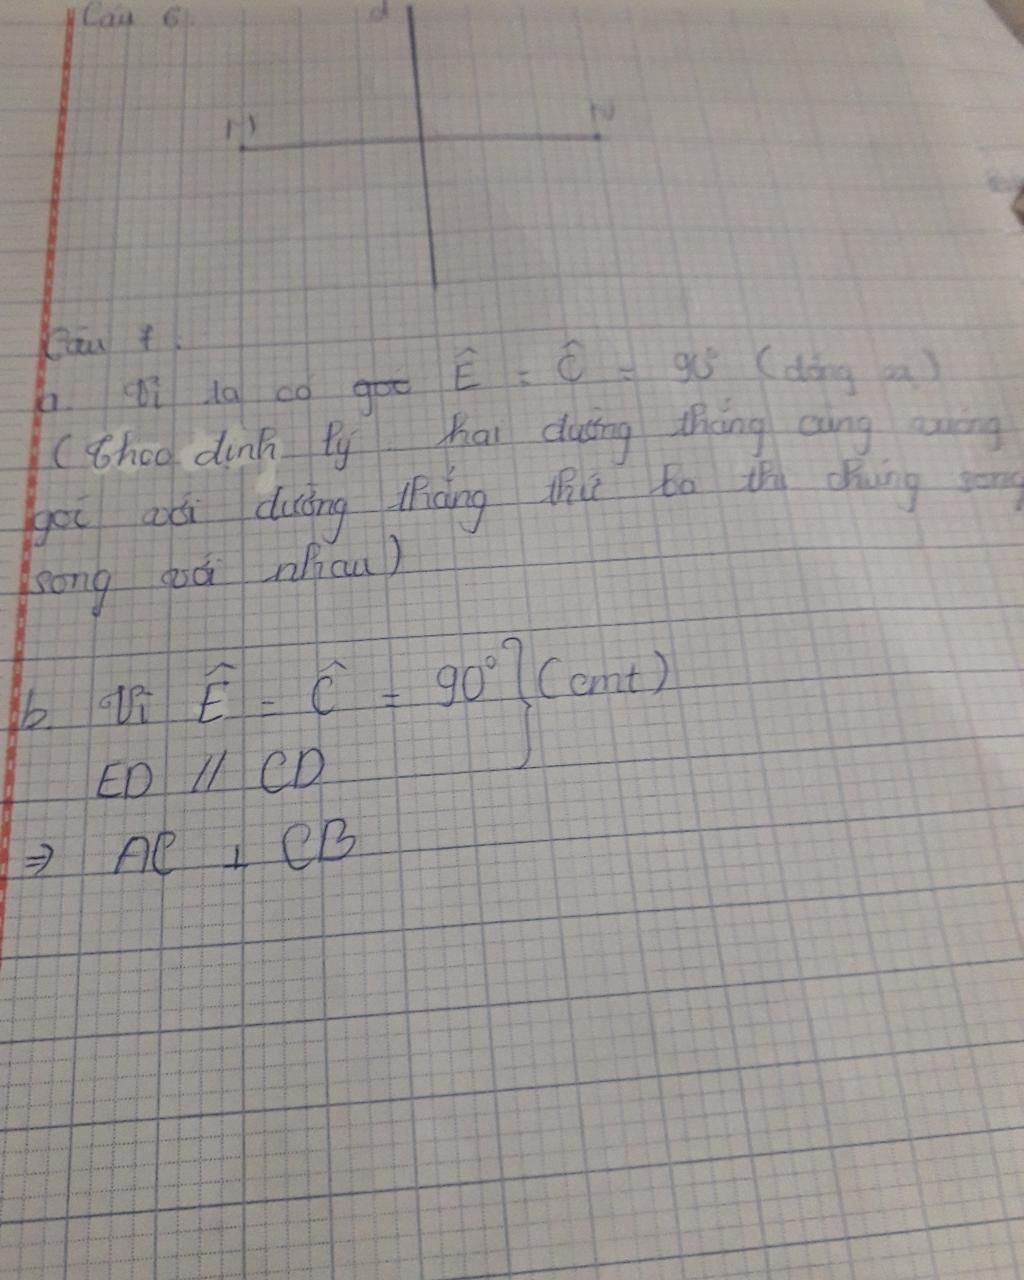 Câu 6
d
M N
Câu 7.
a. Vì ta có góc Ê = Ĉ = 90° (đồng vị)
(Theo định lý hai đường thẳng cùng vuông
goí với đường thẳng thứ ba thì chúng song
song với nhau)
b. Vì Ê = Ĉ = 90° } (cmt)
ED // CD
⇒ AC ⊥ CB